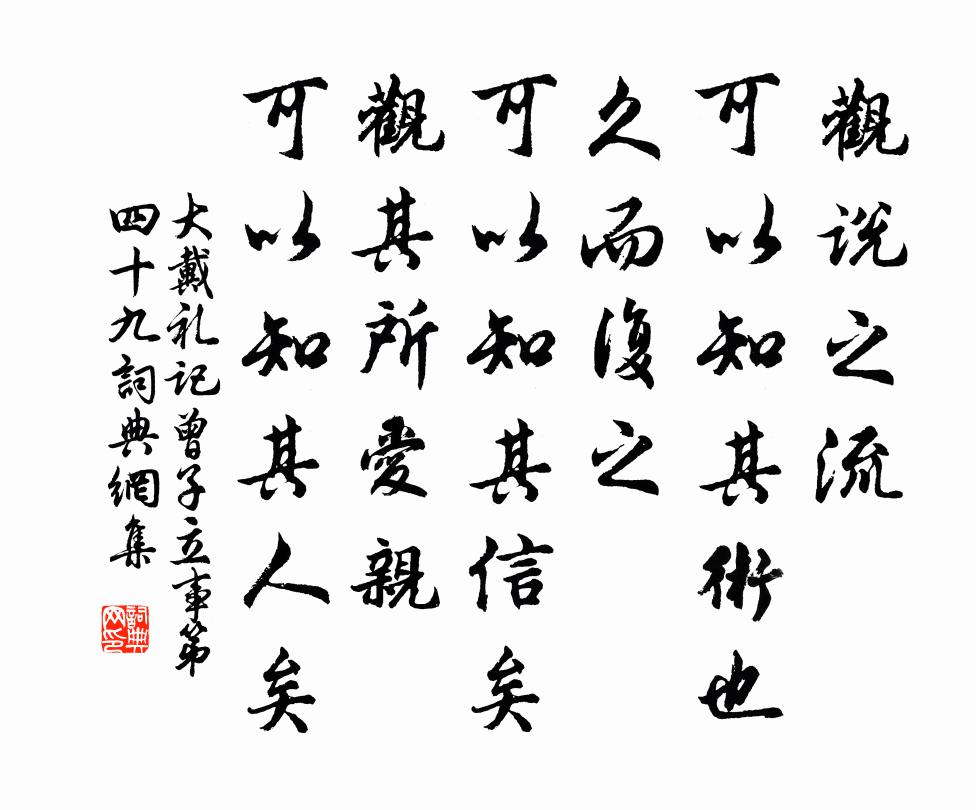 觀说之流
可以知其術也
久而復之
可以知其信矣
觀其所愛親
可以知其人矣
大戴礼记曾子立事第
四十九詞典網集
詞典
网印